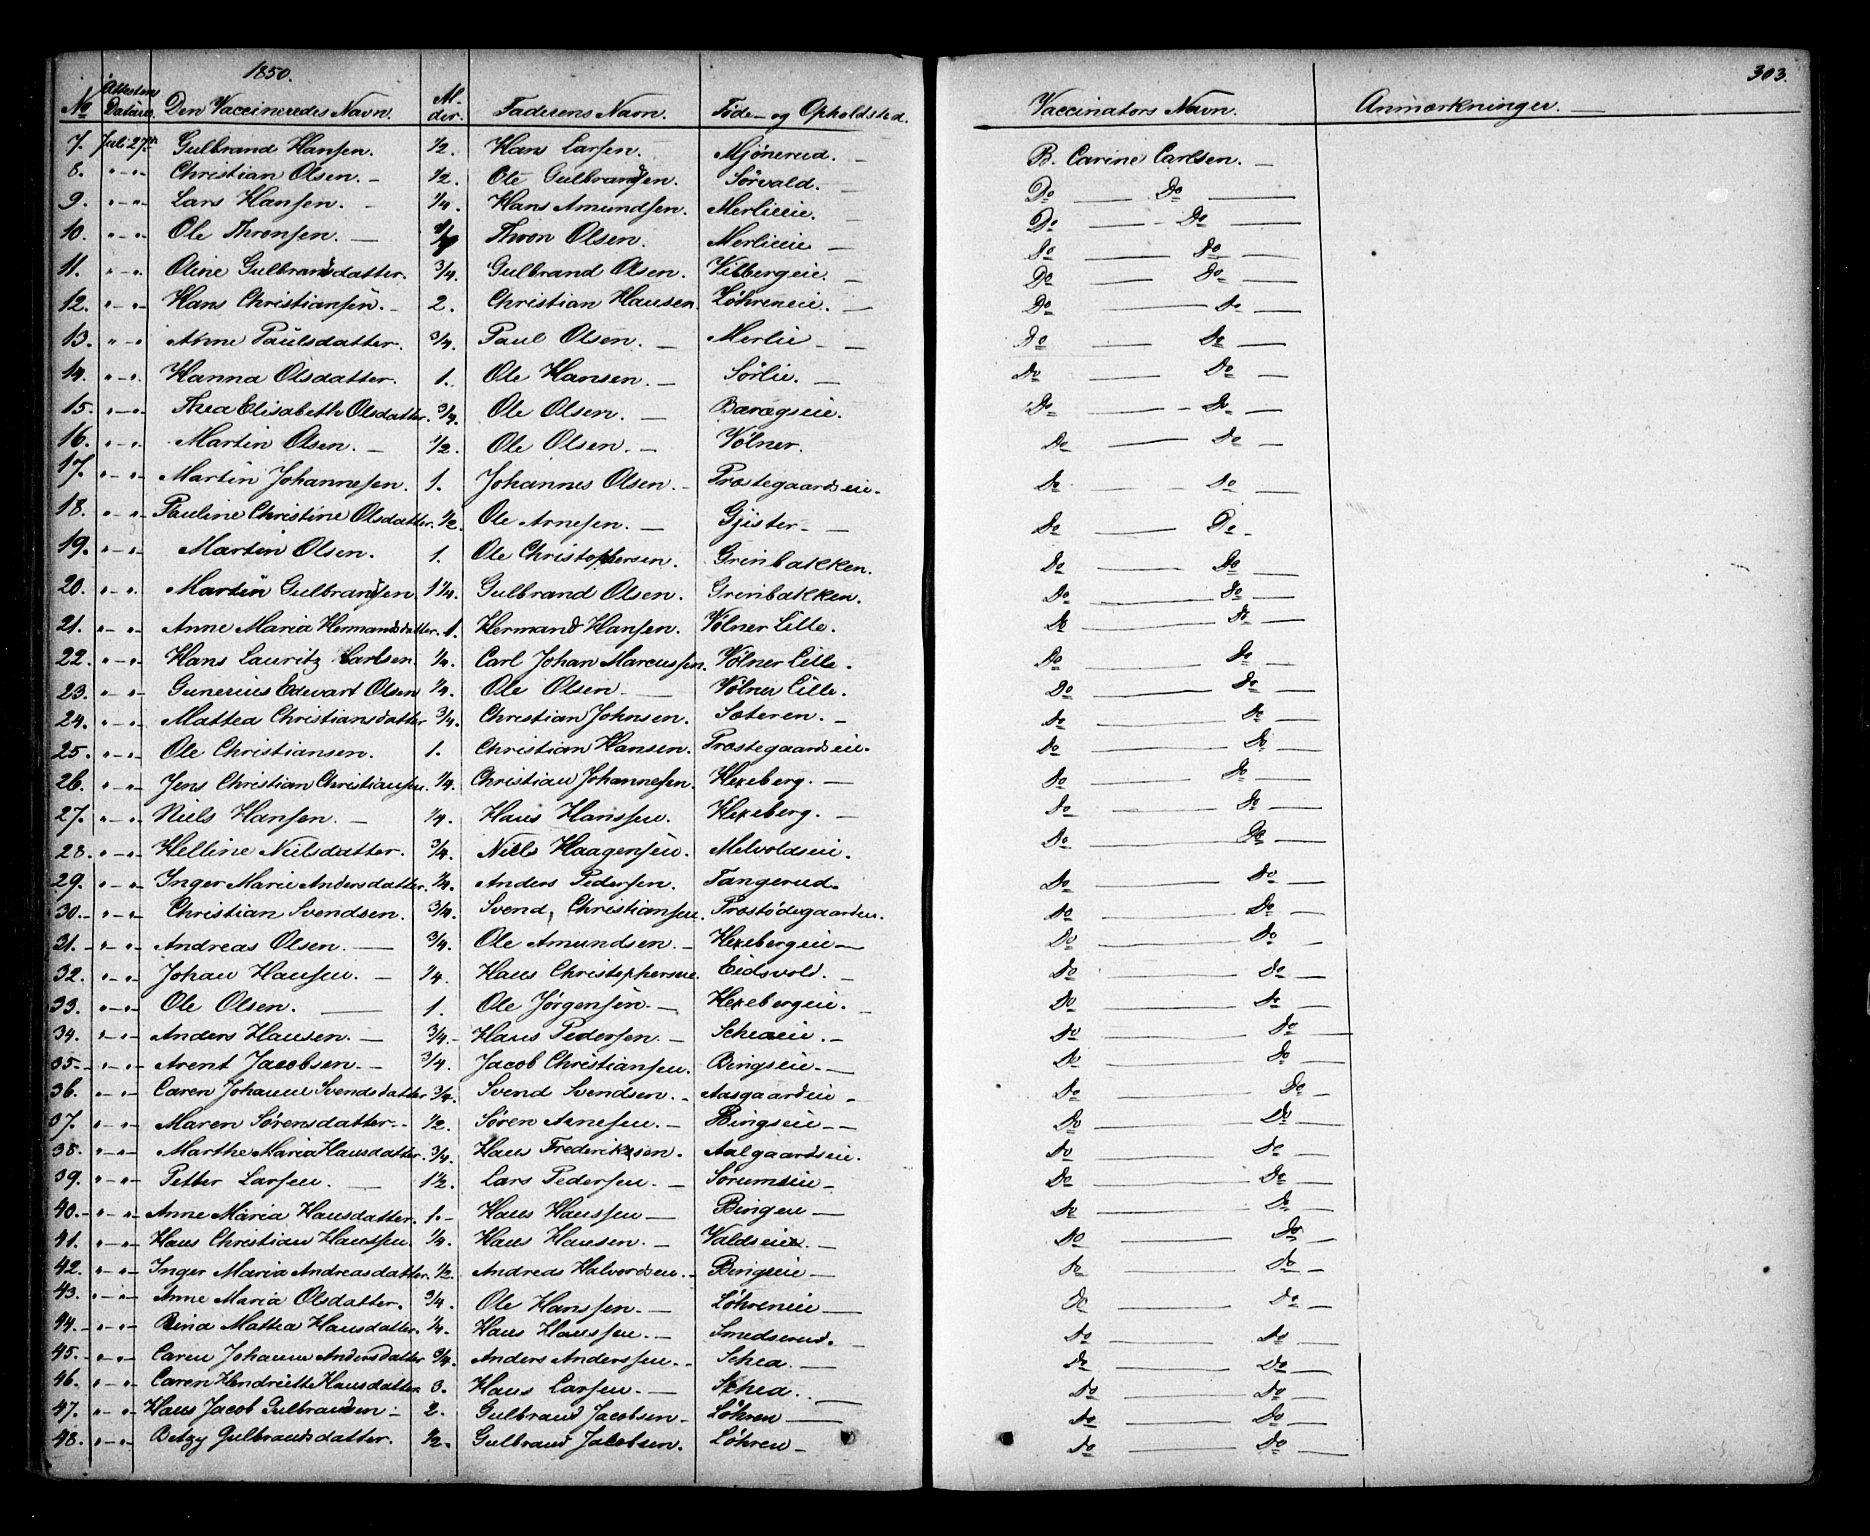 1850.
303.
No Attestens Datum. Den Vaccineredes Navn. Al-der. Faderens Navn. Føde- og Opholdsted. Vaccinators Navn. Anmærkninger. —
7. Juli 27de Gulbrand Hansen. 1/2. Hans Larsen. Mjønerud. B. Carine Carlsen. —
8. " — " Christian Olsen. — 1/2. Ole Gulbrandsen. Sørvald. — Do — Do —
9. " — " Lars Hansen. — 1/4. Hans Amundsen. Merlieie. — Do — Do —
10. " — " Ole Thronsen. — Thron Olsen. Merlieie — Do — Do —
11. " — " Oline Gulbrandsdatter. 3/4. Gulbrand Olsen. Vilbergeie. — Do — Do —
12. " — " Hans Christiansen. — 2. Christian Hansen. Løhreneie. — Do — Do —
13. " — " Anne Paulsdatter. 3/4. Paul Olsen. — Merlie — Do — Do —
14. " — " Hanna Olsdatter. 1. Ole Hansen. — Sørlie. — Do — Do —
15. " — " Thea Elisabeth Olsdatter. 3/4. Ole Olsen. — Barægseie. Do — Do —
16. " — " Martin Olsen. — 1/2. Ole Olsen. — Vølner. Do — Do —
17. " — " Martin Johannesen. 1. Johannes Olsen. — Præstegaardseie. Do — Do —
18. " — " Pauline Christine Olsdatter. 1/2. Ole Arnesen. — Gjister — Do — Do —
19. " — " Martin Olsen. 1. Ole Christophersen. Grinbakken. Do — Do —
20. " — " Martin Gulbrandsen. 1 1/4. Gulbrand Olsen. Grinbakken. Do — Do —
21. " — " Anne Maria Hermandsdatter. 1. Hermand Hansen. Vølner Lille. Do — Do —
22. " — " Hans Lauritz Carlsen. 1/4. Carl Johan Marcussen. Vølner Lille. Do — Do —
23. " — " Gunerius Edevart Olsen 1/4. Ole Olsen — Vølner Lille. Do — Do —
24. " — " Mathea Christiansdatter 3/4. Christian Johnsen. Sæteren. — Do — Do —
25. " — " Ole Christiansen. 1. Christian Hansen. Præstegaardseie. Do — Do —
26. " — " Jens Christian Christiansen. 1/4. Christian Johannesen. Hexeberg. — Do — Do —
27. " — " Niels Hansen. — 1/4. Hans Hanssen. Hexeberg. — Do — Do —
28. " — " Helline Nielsdatter. 3/4. Niels Haagensen. Melvoldseie. Do — Do —
29. " — " Inger Marie Andersdatter. 1/4. Anders Pedersen. Tangerud. Do — Do —
30. " — " Christian Svendsen. 3/4. Svend Christiansen. Præstødegaarden. Do — Do —
31. " — " Andreas Olsen. — 3/4. Ole Amundsen. — Hexebergeie — Do — Do —
32. " — " Johan Hansen. — 1/4. Hans Christophersen. Eidsvold. — Do — Do —
33. " — " Ole Olsen. — 1. Ole Jørgensen. — Hexebergeie. — Do — Do —
34. " — " Anders Hansen. — 3/4. Hans Pedersen. — Scheaeie. — Do — Do —
35. " — " Arent Jacobsen. — 3/4. Jacob Christiansen. Bingseie. — Do — Do —
36. " — " Caren Johanne Svendsdatter 3/4. Svend Svendsen. — Aasgaardeie — Do — Do —
37. " — " Maren Sørensdatter. — 1/2. Søren Arnesen. — Bingseie — Do — Do —
38. " — " Marthe Maria Hansdatter. 3/4. Hans Frederiksen. Aalgaardseie. Do — Do —
39. " — " Petter Larsen. — 1 1/2. Lars Pedersen. — Sørumseie — Do — Do —
40. " — " Anne Maria Hansdatter. 1. — Hans Hanssen — Bingen — Do — Do —
41. " — " Hans Christian Hanssen. 1/4. Hans Hansen. — Valdseie. — Do — Do —
42. " — " Inger Maria Andreasdatter. 1/2. Andreas Halvordsen. — Bingseie — Do — Do —
43. " — " Anne Maria Olsdatter. 3/4. Ole Hanssen. — Løhreneie — Do — Do —
44. " — " Rina Mathea Hansdatter. 1/4. Hans Hanssen. — Smedserud. Do — Do —
45. " — " Caren Johanne Andersdatter 3/4. Anders Anderssen. — Schea. — Do — Do —
46. " — " Caren Hendritte Hansdatter. 3. Hans Larsen. — Schea. — Do — Do —
47. " — " Hans Jacob Gulbrandsen — 2. Gulbrand Jacobsen. — Løhren — Do — Do —
48. " — " Betzy Gulbrandsdatter. 1/2. Gulbrand Jacobsen. Løhren — Do — Do —